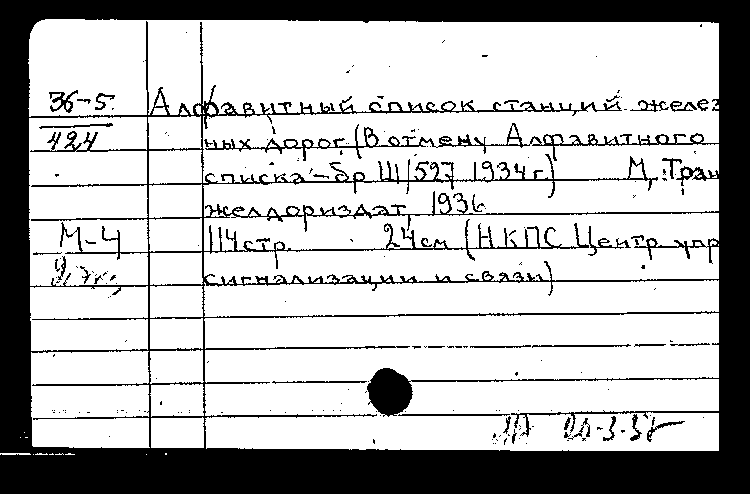 36-5
424
М-4
Алфавитный список станций желез
ных дорог (В отмену Алфавитного
списка – бр Ш/527 1934 г.) М, Тран
желдориздат, 1936
114 стр. 24 см (НКПС Центр упр
сигнализации и связи)
20-3-37